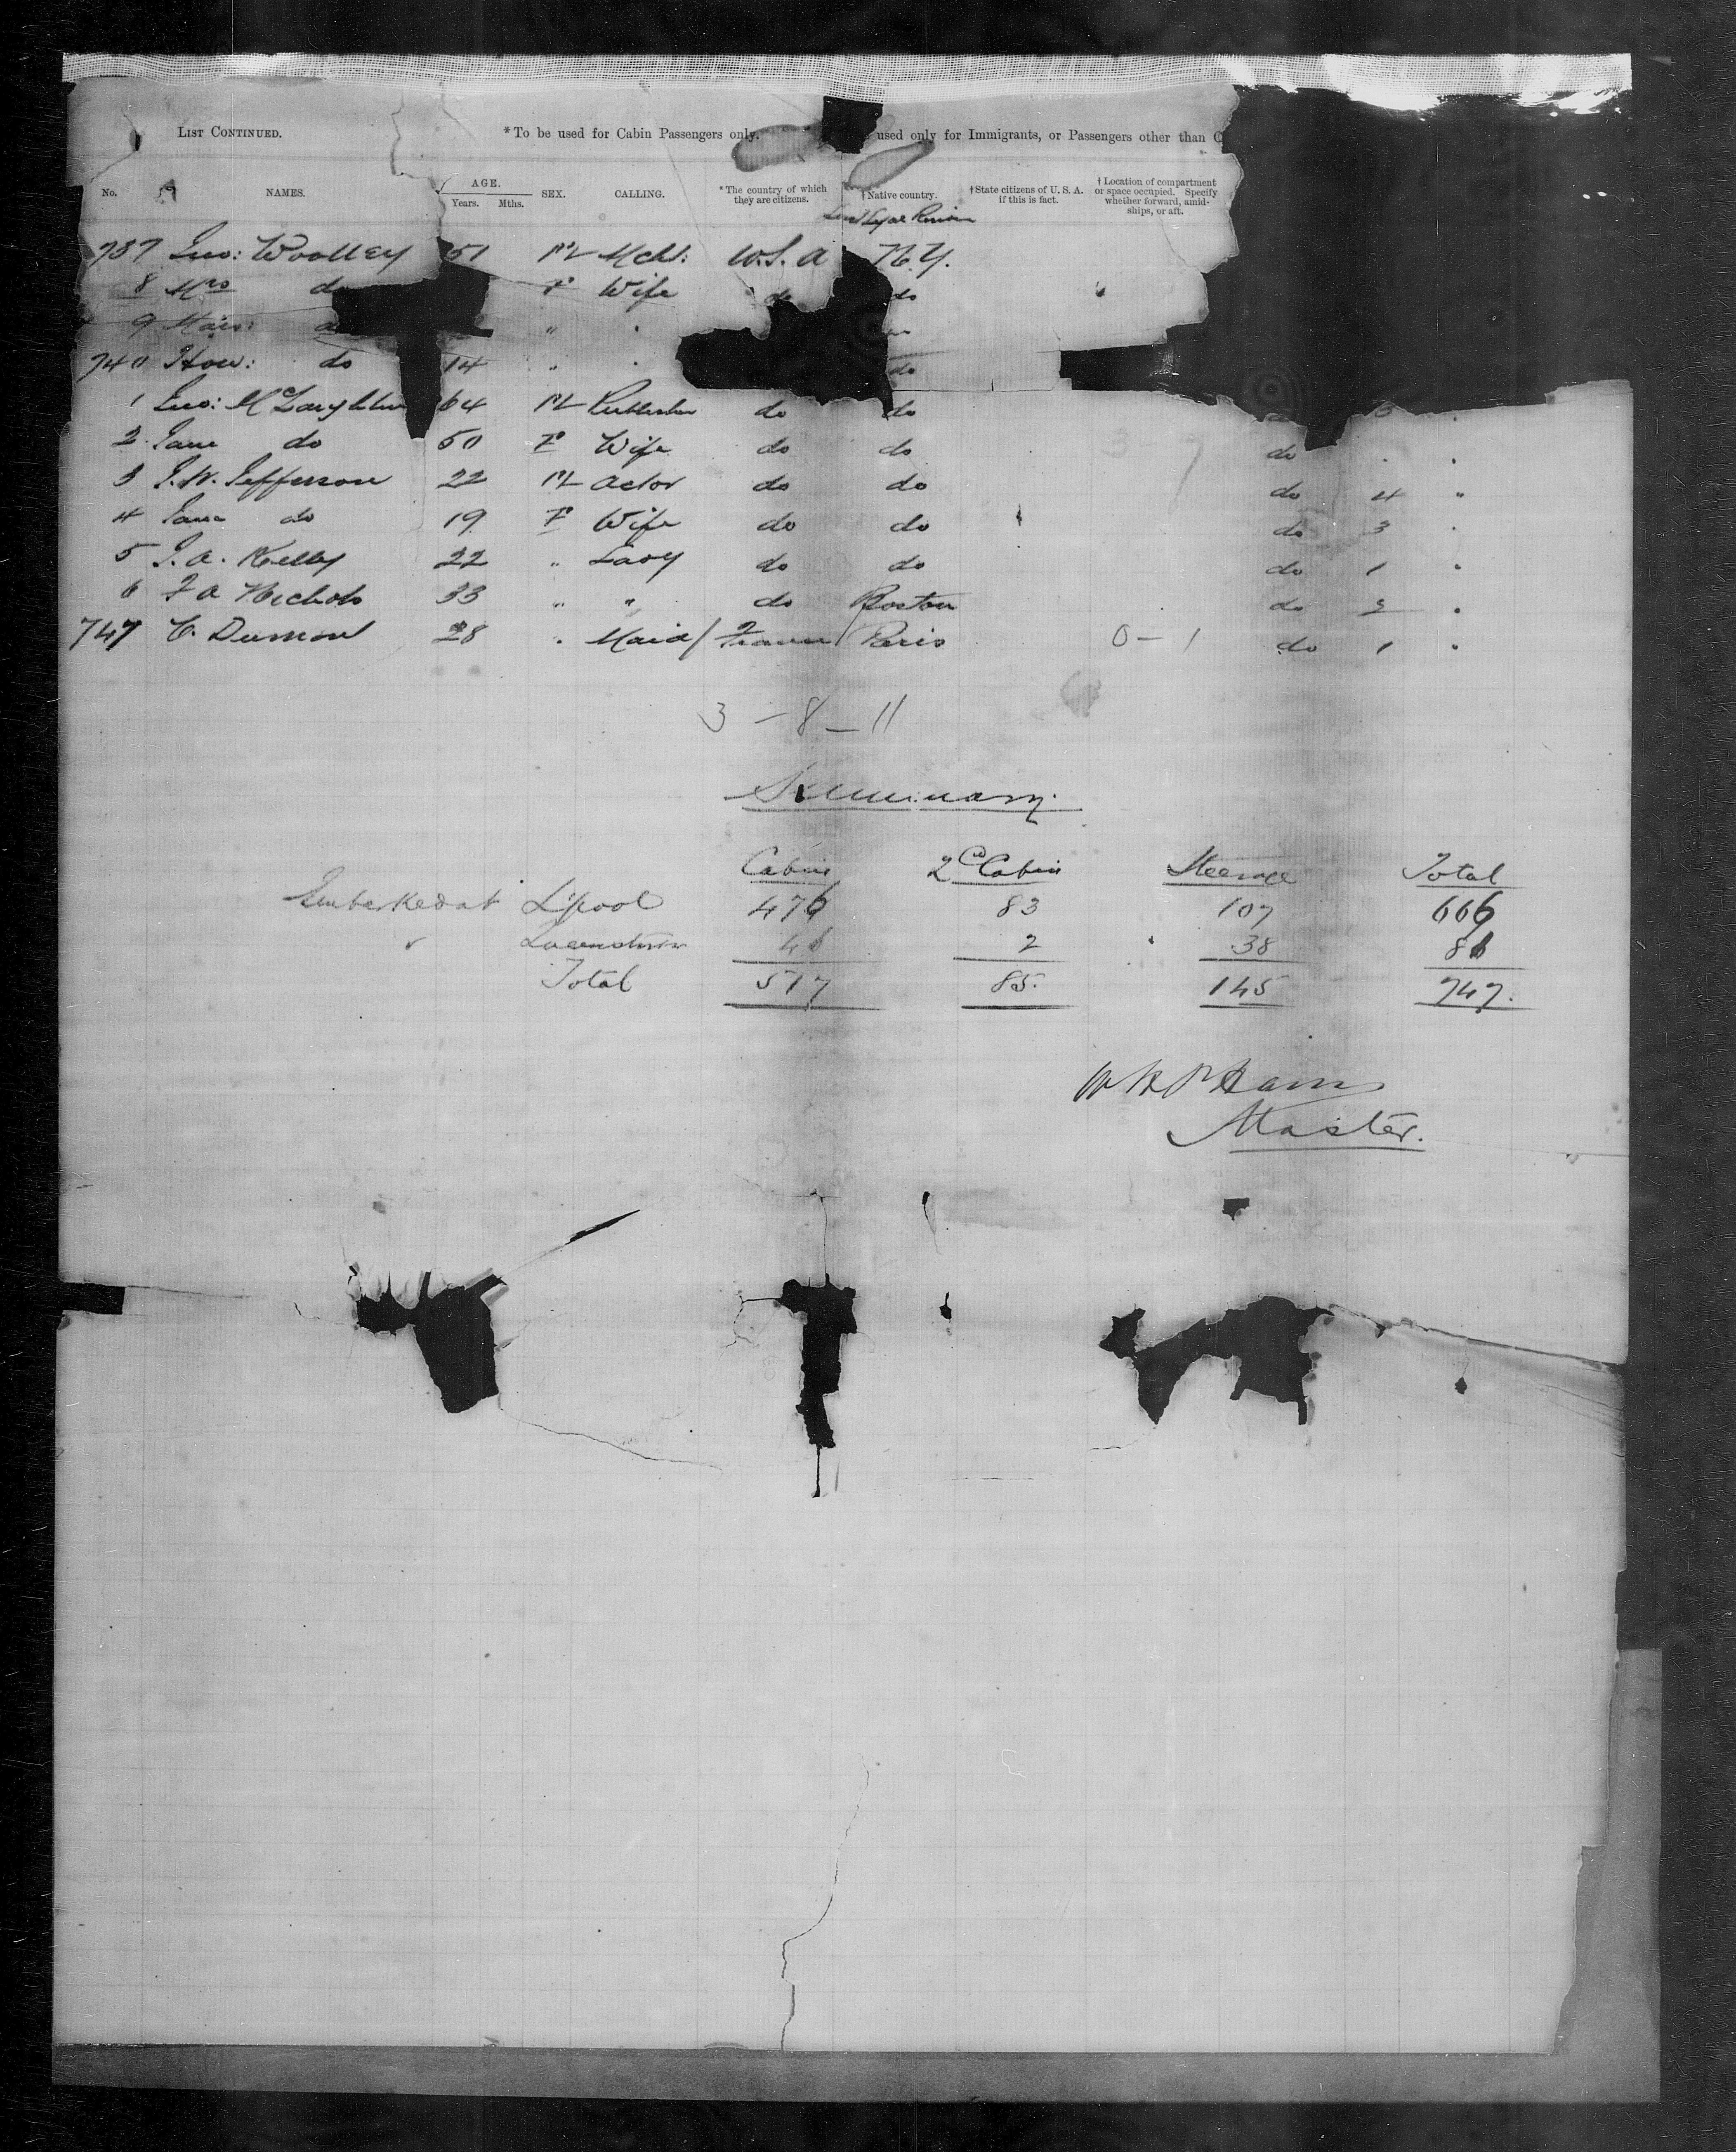 LIST CONTINUED. *To be used for Cabin Passengers only. used only for Immigrants, or Passengers other than C
No. 59 NAMES. AGE. Years. Mths. SEX. CALLING. *The country of which they are citizens. †Native country. †State citizens of U. S. A. if this is fact. †Location of compartment or space occupied. Specify whether forward, amidships, or aft.
737 Jno: Woolley 51 M Mcht: U.S.A N.Y.
8 Mrs do F Wife do do
9 " 
740 How: do 14 " do
1 Jno: McLaughlin 64 M Publisher do do
2 Jane do 50 F Wife do do do
3 J. W. Jefferson 22 M Actor do do do 4 "
4 Jane do 19 F Wife do do do 3
5 J. A. Kelly 22 " Lady do do do 1 "
6 F A Nichols 33 " " do Boston do 2 "
747 C. Dumont 28 " Maid / France / Paris 0 - 1 do 1 "
3 - 8 - 11
Summary.
Cabin 2nd Cabin Steerage Total
Embarked at L'pool 476 83 107 666
" Queenstown 41 2 38 81
Total 517 85. 145 747.
Master.